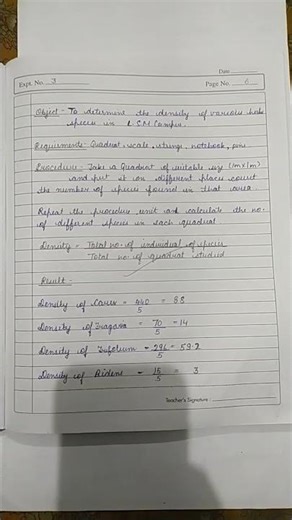 Date
Expt. No. 3
Page No. 6
Object - To determent the density of various herbs
species in L.S.M Campus.
Requirements - Quadrat, scale, strings, notebook, pens
Procedure - Take a Quadrat of suitable size (1m x 1m)
and put it on different places count
the number of species found in that area.
Repeat the procedure and calculate the no.
of different species in each quadrat.
Density = Total no. of individual of species
Total no. of quadrat studied
Result -
Density of Carex = 440/5 = 88
Density of Fragaria = 70/5 = 14
Density of Trifolium = 296/5 = 59.2
Density of Bidens = 15/5 = 3
Teacher's Signature :